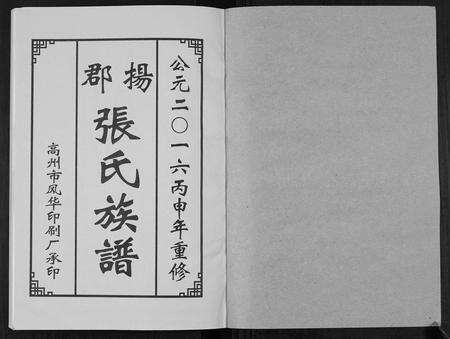 公元二〇一六丙申年重修
揚郡
張氏族譜
高州市风华印刷厂承印